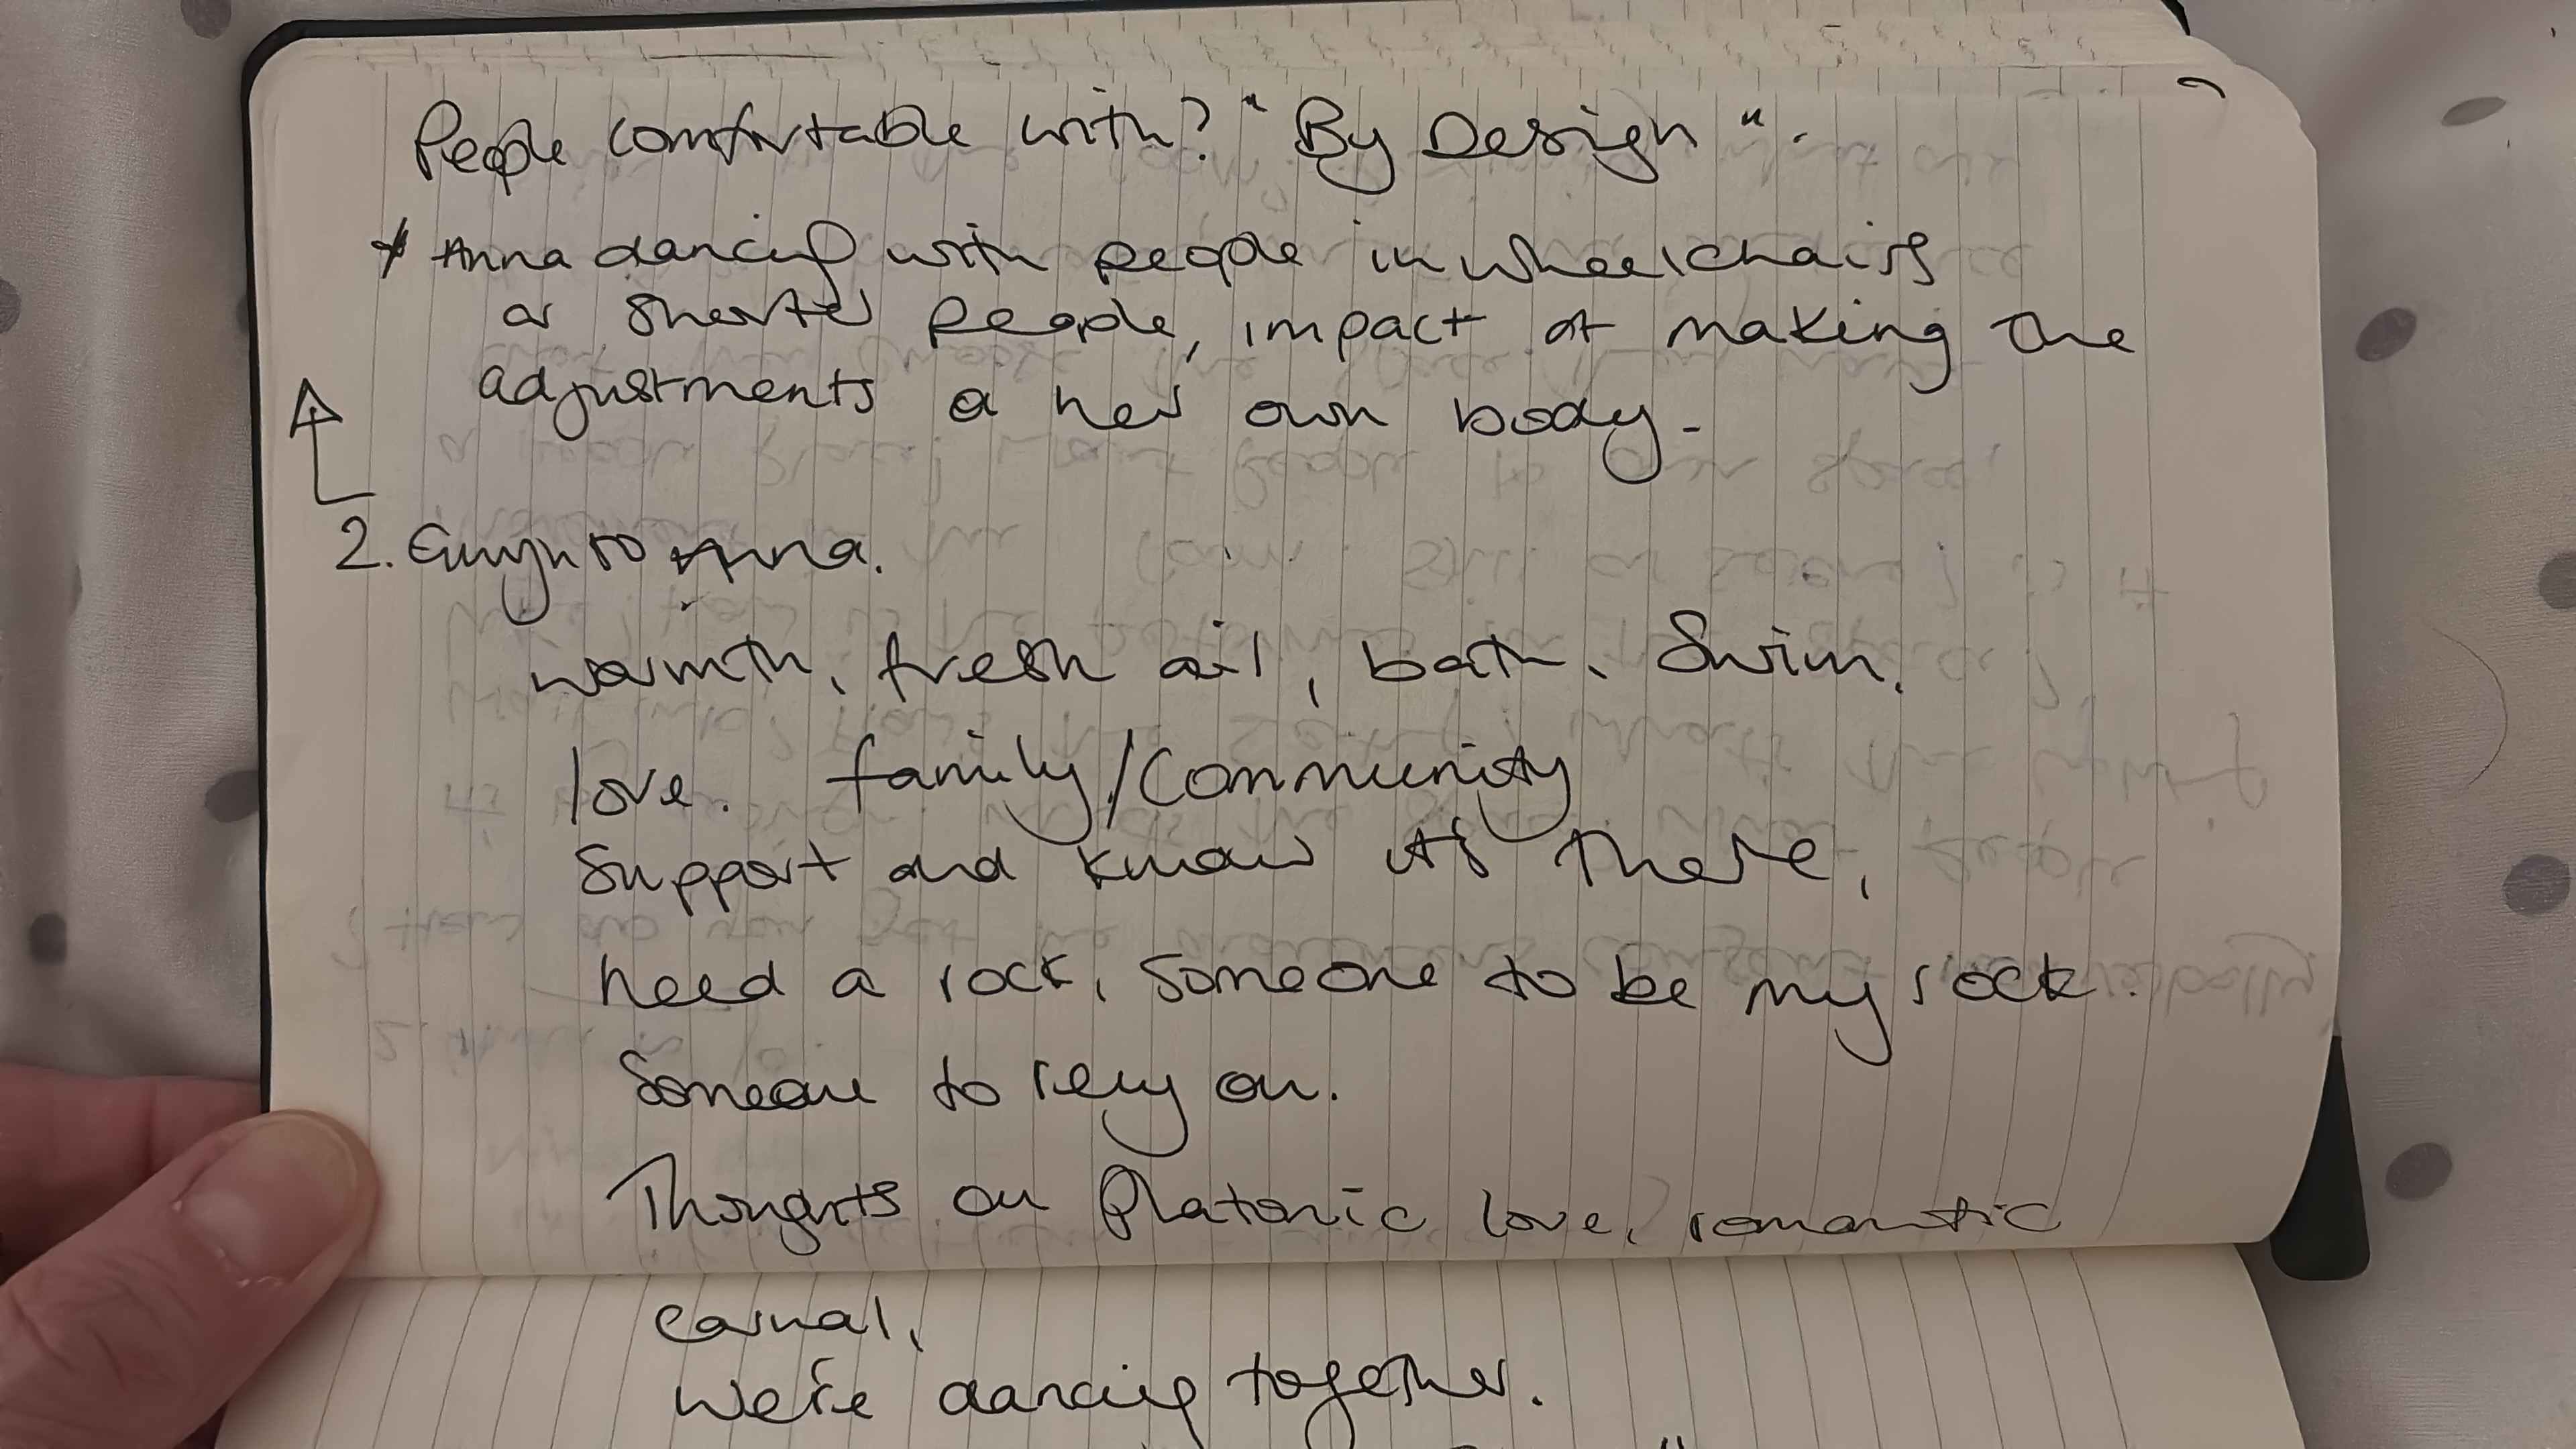 People comfortable with? "By Design".
* Anna dancing with people in wheelchairs
or shorter people, impact of making the
adjustments on her own body.
2. to Anna.
warmth, fresh air, bath, Swim.
love. family/Community
Support and know its there,
need a rock, someone to be my rock.
Someone to rely on.
Thoughts on Platonic love, romantic
carnal,
We're dancing together.